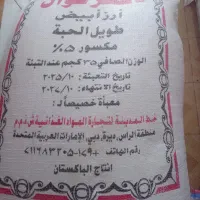 أرز أبيض
طويل الحبة
مكسور ٥٪
الوزن الصافي ٣٥ كجم عند التعبئة
تاريخ التعبئة: ٢٠٢٥/١٠
تاريخ الانتهاء: ٢٠٢٧/١٠
معبأة خصيصاً لـ:
خط المدينة لتجارة المواد الغذائية ش.ذ.م.م
منطقة الراس, ديرة, دبي, الإمارات العربية المتحدة
رقم الهاتف:
إنتاج الباكستان